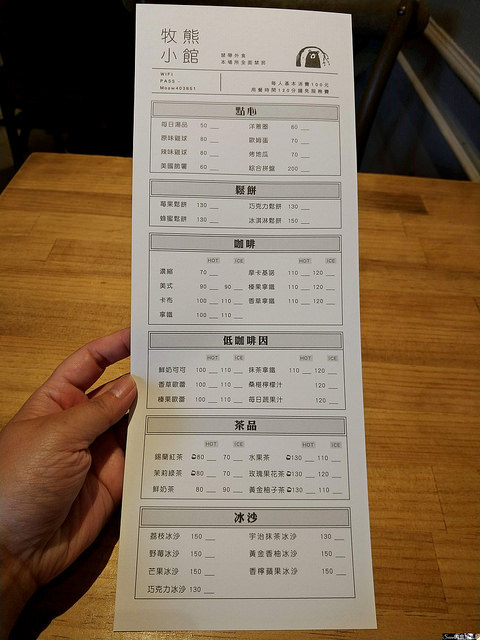 牧熊
小館
禁帶外食
本場所全面禁菸
WIFI
PASS -
Meow403851
每人基本消費100元
用餐時間120分鐘免服務費
點心
每日湯品 50 洋蔥圈 60
原味雞球 80 歐姆蛋 70
辣味雞球 80 烤地瓜 70
美國脆薯 60 綜合拼盤 200
鬆餅
莓果鬆餅 130 巧克力鬆餅 130
蜂蜜鬆餅 130 冰淇淋鬆餅 150
咖啡
HOT ICE HOT ICE
濃縮 70 摩卡基諾 110 120
美式 90 90 榛果拿鐵 110 120
卡布 100 110 香草拿鐵 110 120
拿鐵 100 110
低咖啡因
HOT ICE HOT ICE
鮮奶可可 100 110 抹茶拿鐵 110 120
香草歐蕾 100 110 桑椹檸檬汁 120
榛果歐蕾 100 110 每日蔬果汁 120
茶品
HOT ICE HOT ICE
錫蘭紅茶 80 70 水果茶 130 110
茉莉綠茶 80 70 玫瑰果花茶 130 120
鮮奶茶 80 90 黃金柚子茶 130 110
冰沙
荔枝冰沙 150 宇治抹茶冰沙 130
野莓冰沙 150 黃金香柚冰沙 150
芒果冰沙 150 香檸蘋果冰沙 150
巧克力冰沙 130